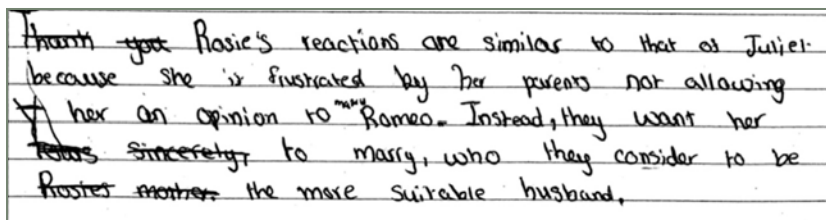 Thank you Rosie's reactions are similar to that of Juliet
because she is frustrated by her parents not allowing
her an opinion to marry Romeo. Instead, they want her
Yours sincerely, to marry, who they consider to be
Rosies mother. the more suitable husband.